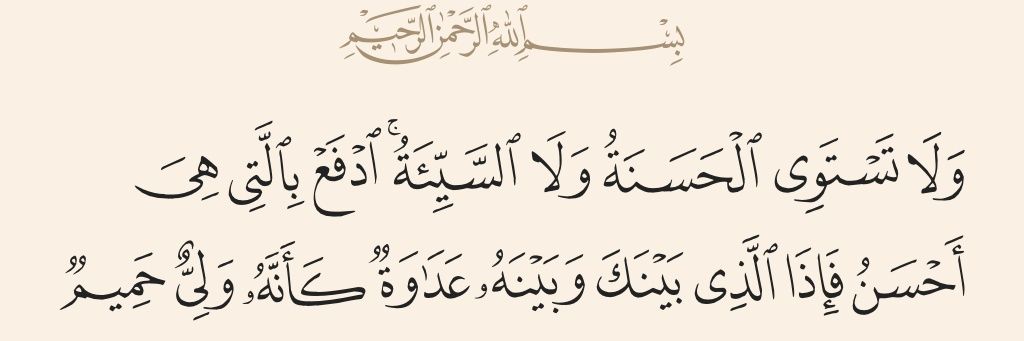 بِسْمِ ٱللَّهِ ٱلرَّحْمَٰنِ ٱلرَّحِيمِ
وَلَا تَسْتَوِى ٱلْحَسَنَةُ وَلَا ٱلسَّيِّئَةُ ۚ ٱدْفَعْ بِٱلَّتِى هِىَ
أَحْسَنُ فَإِذَا ٱلَّذِى بَيْنَكَ وَبَيْنَهُۥ عَدَٰوَةٌ كَأَنَّهُۥ وَلِىٌّ حَمِيمٌ